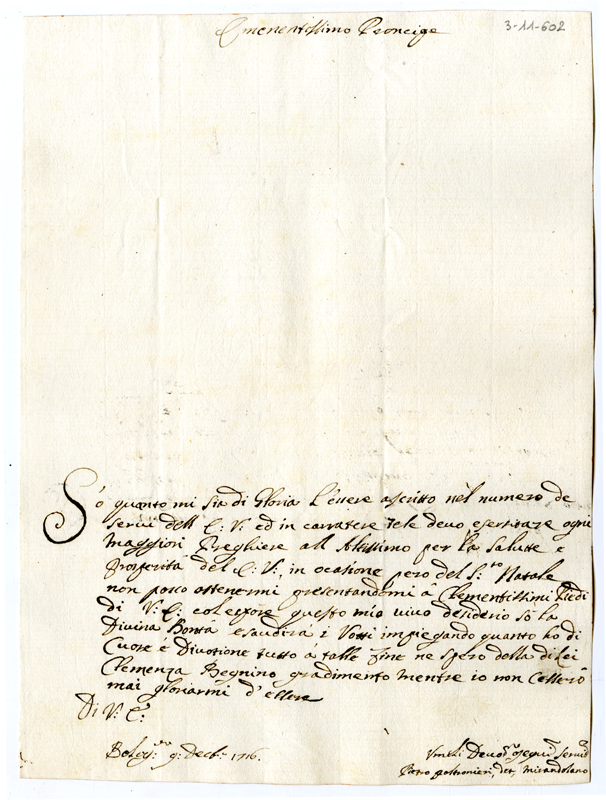 Emenentissimo Prencipe
3-11-602
Sò quanto mi sia di Gloria L'essere ascritto nel numero de
servi dell E: V: ed in carratere tele devo esercitare ogni
maggiori Preghiere all Altissimo per la salutte e
Prosperita del E: V:, in ocasione pero del S:to Natale
non posso astenermi presentandomi à Clementissimi Piedi
di V: E: col esporre questo mio vivo desiderio sò la
Divina Bontà esaudira i Votti impiegando quanto hò di
Cuore é Divotione tutto á talle fine ne spero dalla di Lei
Clemenza Begnino gradimento mentre io non cesserò
mai gloriarmi d'essere
Di V: E:
Bologna 9: Decbr: 1716.
Umil: Devo: osequi: servid
Pietro poltronieri, det: Mirandolano